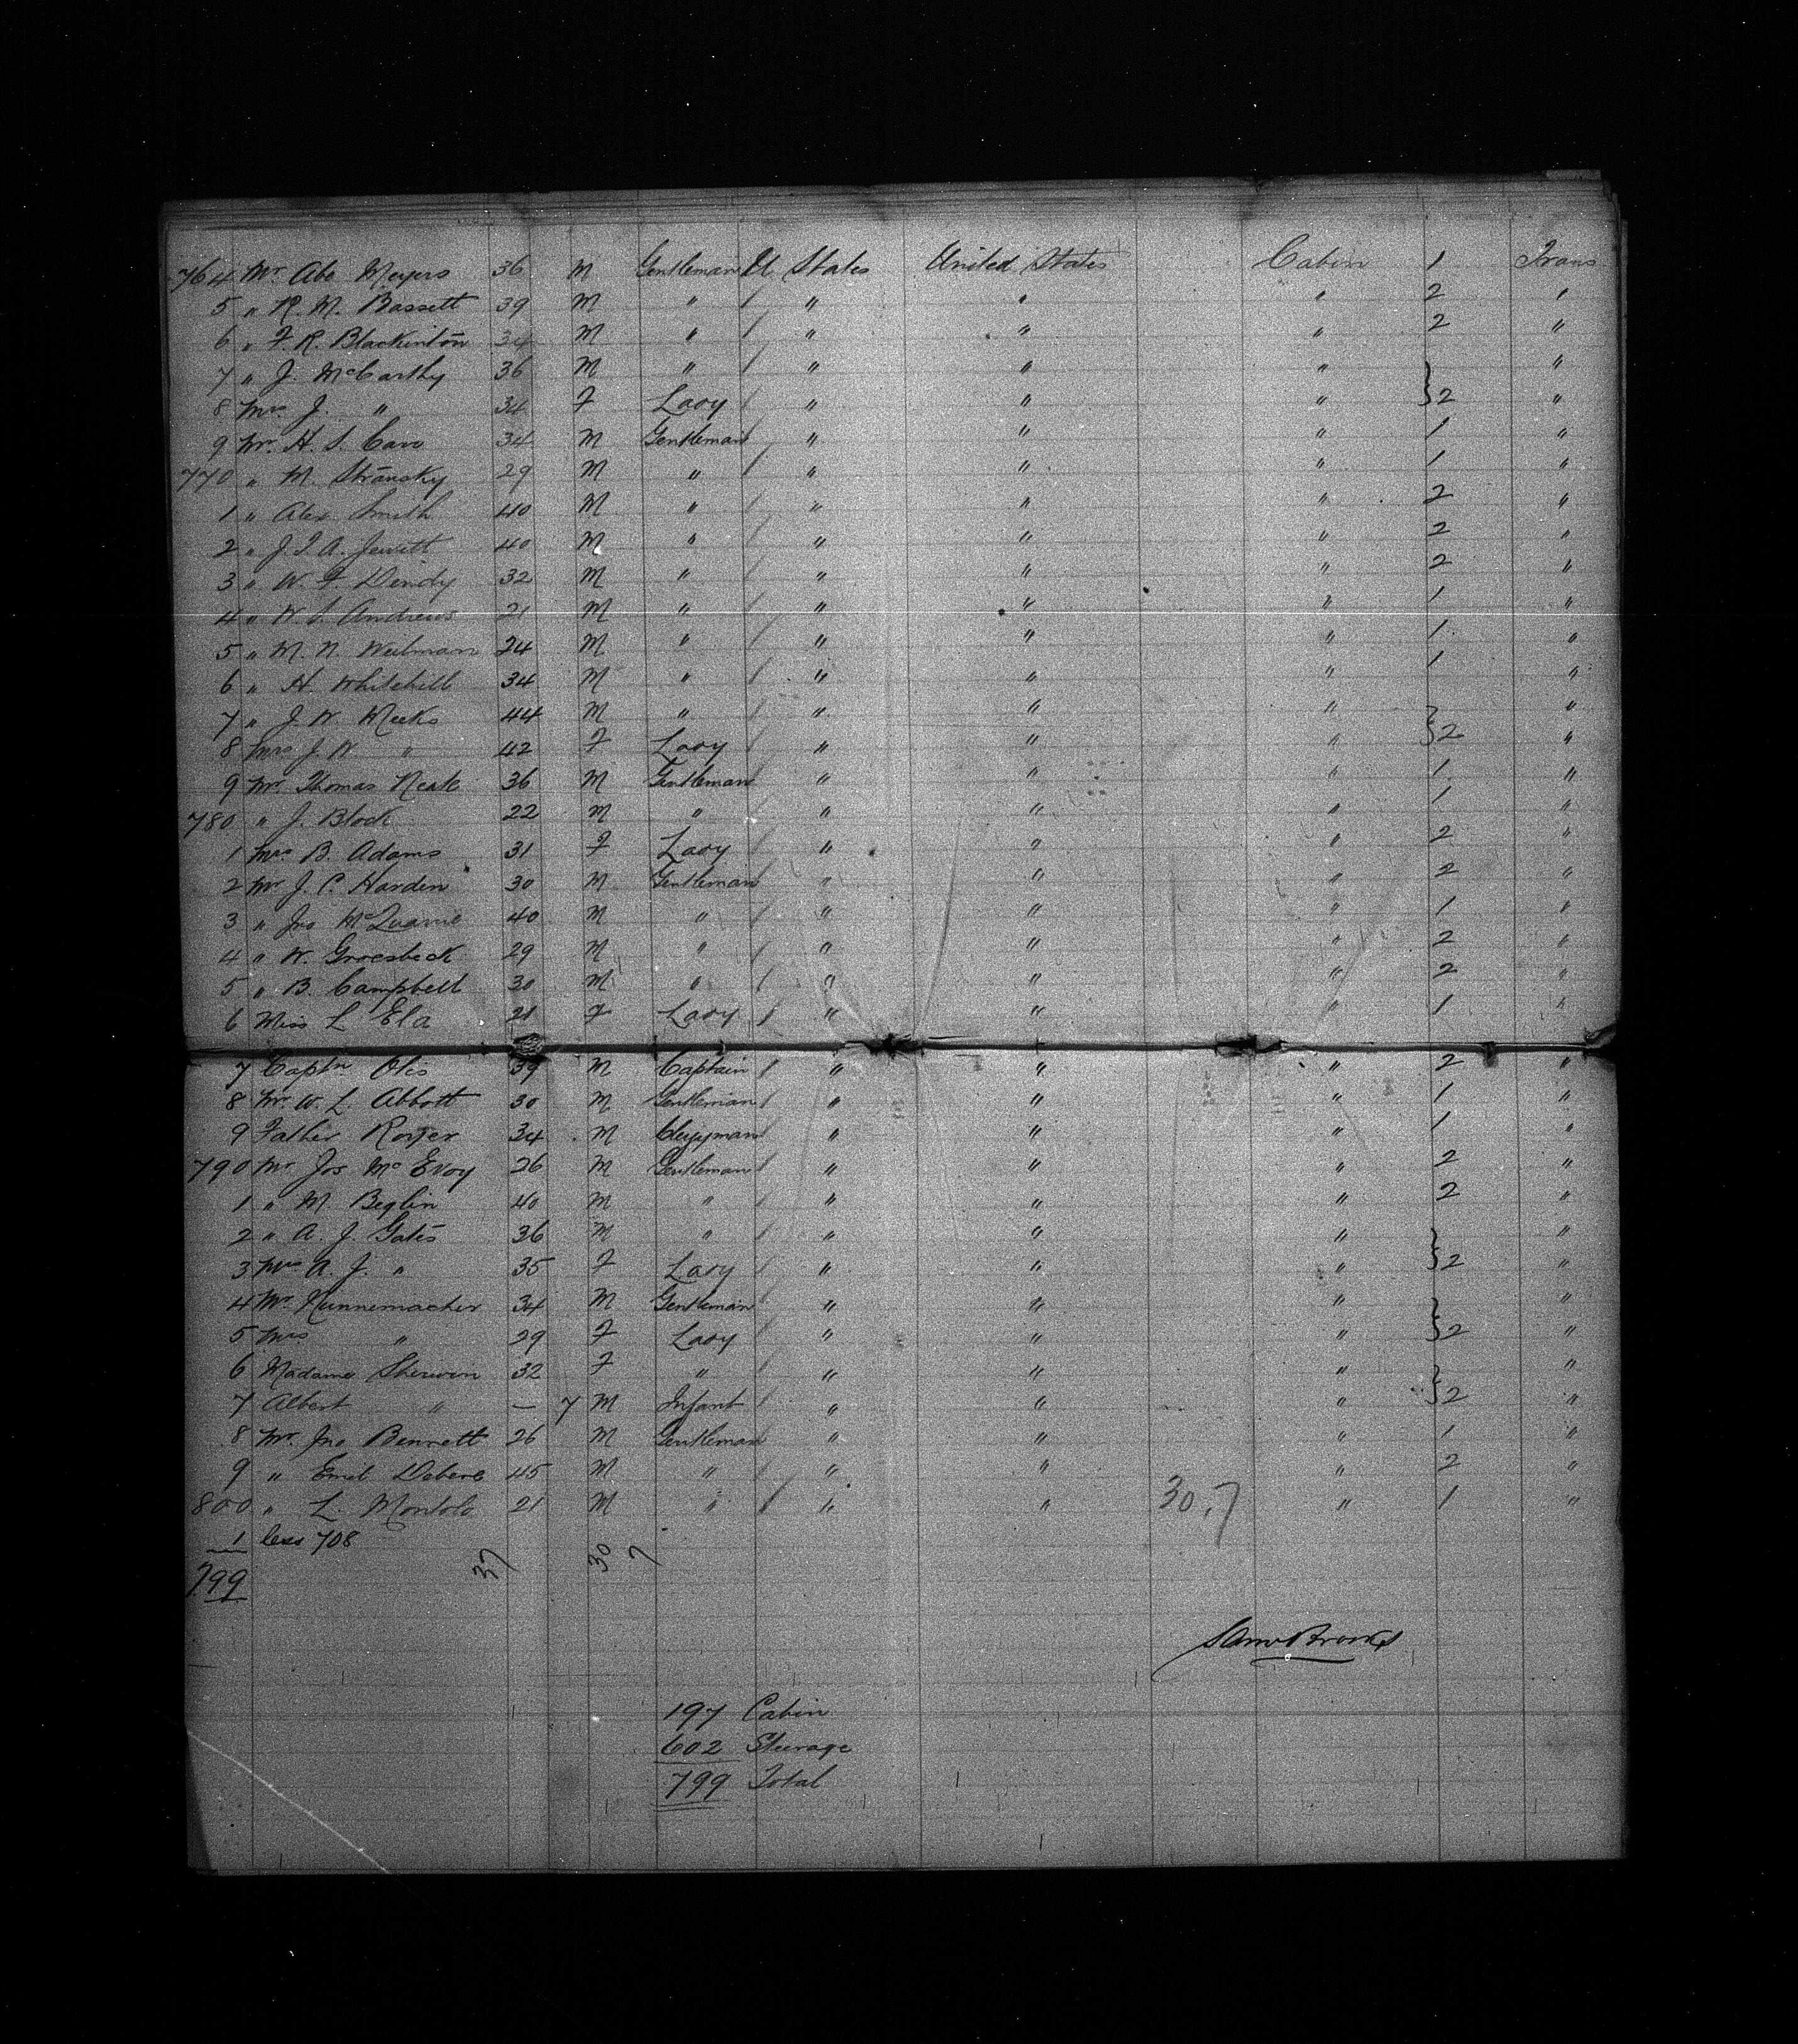 764 Mr. Abe Meyers 36 M Gentleman U States United States Cabin 1 Trans
5 " R. M. Bassett 39 M " " " " 2 "
6 " F R. Blackinton 34 M " " " " 2 "
7 " J. McCarthy 36 M " " " " "
8 Mrs. J. " 34 F Lady " " " 2 "
9 Mr. H. S. Caro 34 M Gentleman " " " 1 "
770 " M. Stransky 29 M " " " " 1 "
1 " Alex Smith 40 M " " " " 2 "
2 " J. A. Jewitt 40 M " " " " 2 "
3 " W. F Dendy 32 M " " " " 2 "
4 " W. S. Andrews 21 M " " " " 1 "
5 " M. N. Weilman 24 M " " " " 1 "
6 " H. Whitehill 34 M " " " " 1 "
7 " J. W. Meeks 44 M " " " " "
8 Mrs J. W. " 42 F Lady " " " 2 "
9 Mr. Thomas Neale 36 M Gentleman " " " 1 "
780 " J. Block 22 M " " " " 1 "
1 Mrs B. Adams 31 F Lady " " " 2 "
2 Mr J. C. Harden 30 M Gentleman " " " 2 "
3 " Jno 40 M " " " " 1 "
4 " W. Groesbeck 29 M " " " " 2 "
5 " B. Campbell 30 M " " " " 2 "
6 Miss L Ela 21 F Lady " " " 1 "
7 Captn Otis 39 M Captain " " " 2 "
8 Mr. W. L. Abbott 30 M Gentleman " " " 1 "
9 Father Royer 34 M Clergyman " " " 1 "
790 Mr Jos McEvoy 26 M Gentleman " " " 2 "
1 " M Beglin 40 M " " " " 2 "
2 " A. J. Gates 36 M " " " " "
3 Mrs A. J. " 35 F Lady " " " 2 "
4 Mr. Nunnemacher 34 M Gentleman " " " "
5 Mrs " 29 F Lady " " " 2 "
6 Madame Sherwin 32 F " " " " "
7 Albert " — 7 M Infant " " " 2 "
8 Mr. Jno Bennett 26 M Gentleman " " " 1 "
9 " Emil Debere 45 M " " " " 2 "
800 " L. 21 M " " " 30.7 " 1 "
1 less 708
799 37 30 7
197 Cabin
602 Steerage
799 Total